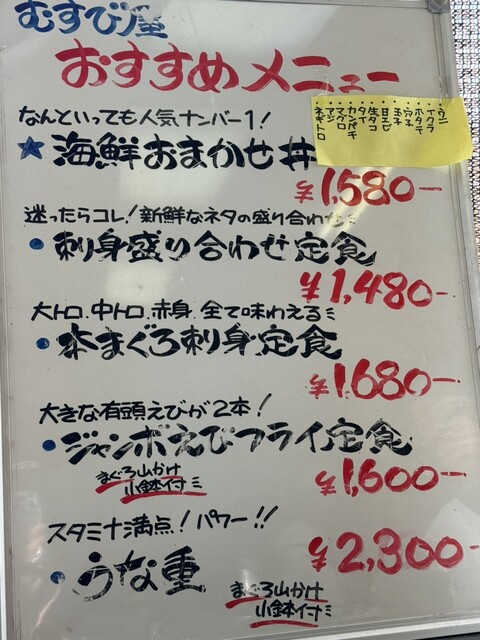 むすび屋
おすすめメニュー
なんといっても人気ナンバー1!
★海鮮おまかせ丼
・ウニ
・イクラ
・ホタテ
・穴子
・玉子
・甘エビ
・生タコ
・タイ
・カンパチ
・マグロ
・アジ
・ネギトロ
¥1,580-
迷ったらコレ!新鮮なネタの盛り合わせ
・刺身盛り合わせ定食
¥1,480-
大トロ.中トロ.赤身.全て味わえる
・本まぐろ刺身定食
¥1,680-
大きな有頭えびが2本!
・ジャンボえびフライ定食
まぐろ山かけ
小鉢付
¥1,600-
スタミナ満点!パワー!!
・うな重
¥2,300-
まぐろ山かけ
小鉢付